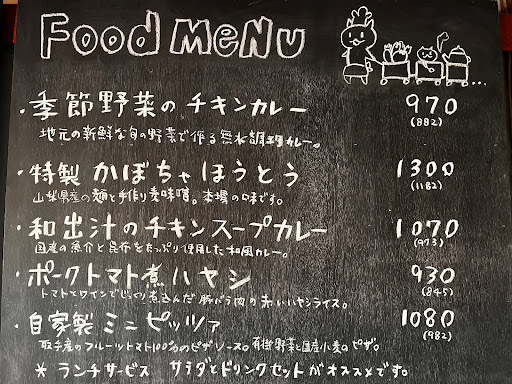 Food Menu
・季節野菜のチキンカレー 970
(882)
地元の新鮮な旬の野菜で作る無水調理カレー。
・特製 かぼちゃほうとう 1300
(1182)
山梨県産の麺と手作り麦味噌。本場の味です。
・和出汁のチキンスープカレー 1070
(973)
国産の魚介と昆布をたっぷり使用した和風カレー。
・ポークトマト煮ハヤシ 930
(845)
トマトとワインでじっくり煮込んだ豚バラ肉の赤いハヤシライス。
・自家製ミニピッツァ 1080
(982)
取手産のフルーツトマト100%のピザソース。有機野菜と国産小麦のピザ。
* ランチサービス サラダとドリンクセットがオススメです。